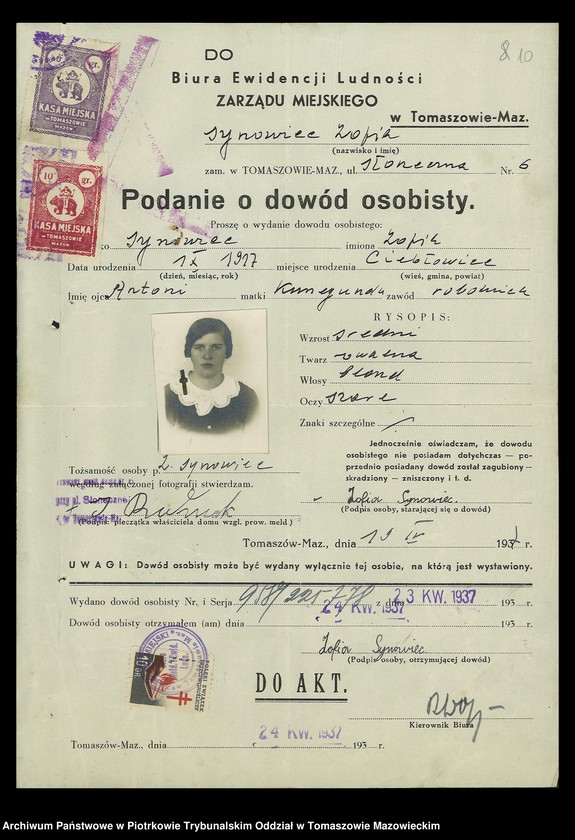 & 10
DO
Biura Ewidencji Ludności
ZARZĄDU MIEJSKIEGO
w Tomaszowie-Maz.
Synowiec Zofia
(nazwisko i imię)
zam. w TOMASZOWIE-MAZ., ul. Słoneczna Nr. 6
gr.
KASA MIEJSKA
w TOMASZOWIE
MAZOW.
10 gr.
KASA MIEJSKA
w TOMASZOWIE
MAZOW.
Podanie o dowód osobisty.
Proszę o wydanie dowodu osobistego:
ko Synowiec imiona Zofia
Data urodzenia 1 X 1917 miejsce urodzenia Ciebłowice
(dzień, miesiąc, rok) (wieś, gmina, powiat)
Imię ojca Antoni matki Kunegunda zawód robotnica
RYSOPIS:
Wzrost średni
Twarz owalna
Włosy blond
Oczy szare
Znaki szczególne
Jednocześnie oświadczam, że dowodu
osobistego nie posiadam dotychczas — po-
przednio posiadany dowód został zagubiony —
skradziony — zniszczony i t. d.
Tożsamość osoby p. Z. Synowiec
według załączonej fotografii stwierdzam.
przy pl. Słonecznej
Zofia Synowiec.
(Podpis osoby, starającej się o dowód)
(Podpis: pieczątka właściciela domu wzgl. prow. meld)
Tomaszów-Maz., dnia 19 IV 1937 r.
UWAGI: Dowód osobisty może być wydany wyłącznie tej osobie, na którą jest wystawiony.
Wydano dowód osobisty Nr. i Serja z dnia 23 KW. 1937 193 r.
Dowód osobisty otrzymałem (am) dnia 24 KW. 1937 193 r.
Zofia Synowiec
(Podpis osoby, otrzymującej dowód)
10 GR
POLSKI ZWIĄZEK
PRZECIWGRUŹLICZY
DO AKT.
Kierownik Biura
Tomaszów-Maz., dnia 24 KW. 1937 193 r.
Archiwum Państwowe w Piotrkowie Trybunalskim Oddział w Tomaszowie Mazowieckim